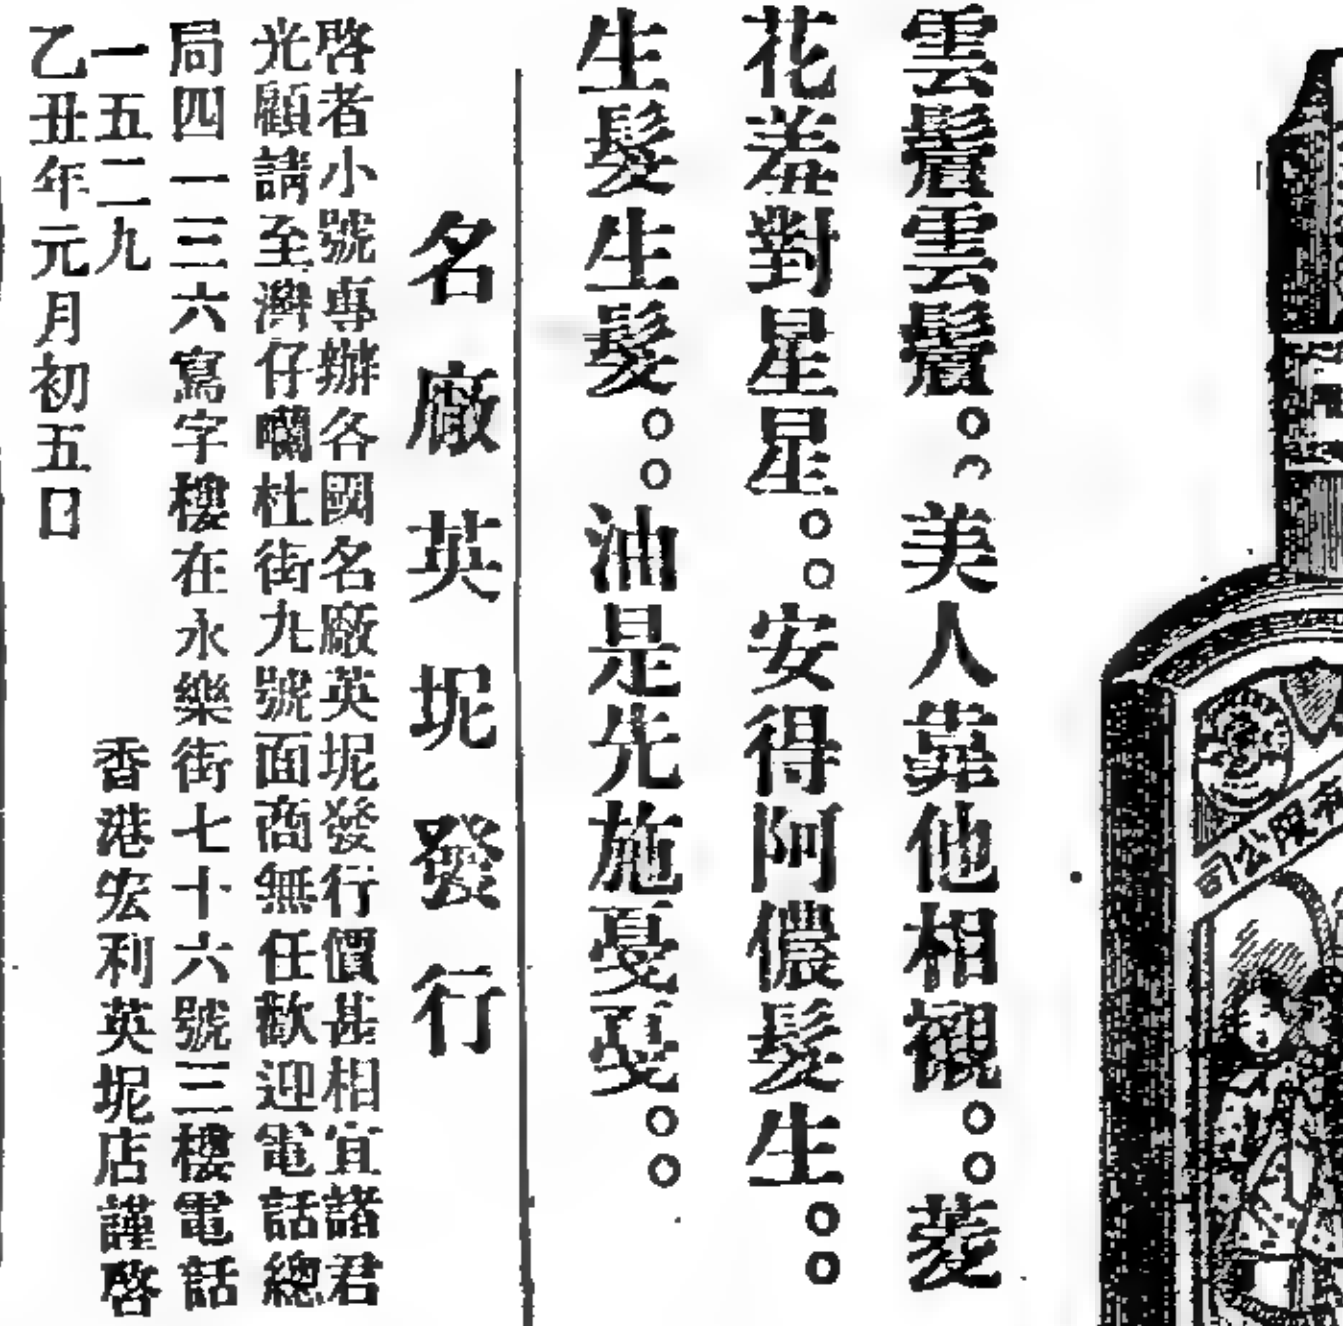 雲鬟雲鬟。。美人靠他相襯。。菱
花羞對星星。。安得阿儂髮生。。
生髮生髮。。油是先施戞戞。。
名廠英坭發行
啓者小號專辦各國名廠英坭發行價甚相宜諸君
光顧請至灣仔囒杜街九號面商無任歡迎電話總
局四一三六寫字樓在永樂街七十六號三樓電話
一五二九 香港宏利英坭店謹啓
乙丑年元月初五日
限公司